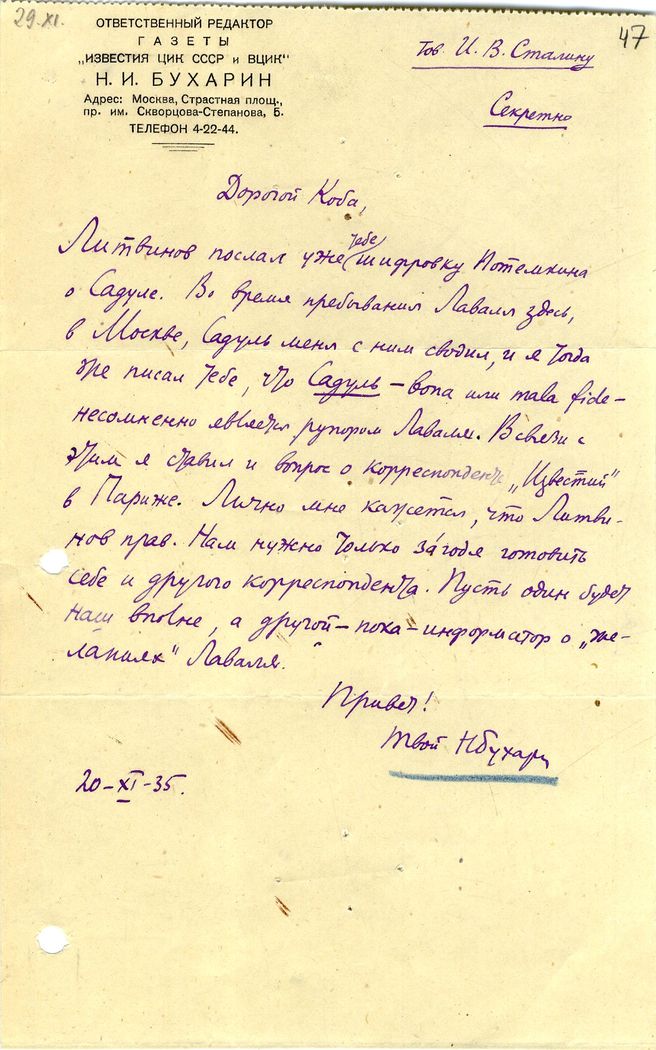 29.XI.
47
ОТВЕТСТВЕННЫЙ РЕДАКТОР
ГАЗЕТЫ
„ИЗВЕСТИЯ ЦИК СССР и ВЦИК"
Н. И. БУХАРИН
Адрес: Москва, Страстная площ.,
пр. им. Скворцова-Степанова, 5.
ТЕЛЕФОН 4-22-44.
Тов. И. В. Сталину
Секретно
Дорогой Коба,
Литвинов послал уже тебе шифровку Потемкина
о Садуле. Во время пребывания Лаваля здесь,
в Москве, Садуль меня с ним сводил, и я тогда
же писал тебе, что Садуль – bona или mala fide –
несомненно является рупором Лаваля. В связи с
этим я ставил и вопрос о корреспонденте „Известий"
в Париже. Лично мне кажется, что Литви-
нов прав. Нам нужно только загодя готовить
себе и другого корреспондента. Пусть один будет
наш вполне, а другой – пока – информатор о „же-
ланиях" Лаваля.
Привет!
Твой НБухарин
20-XI-35.